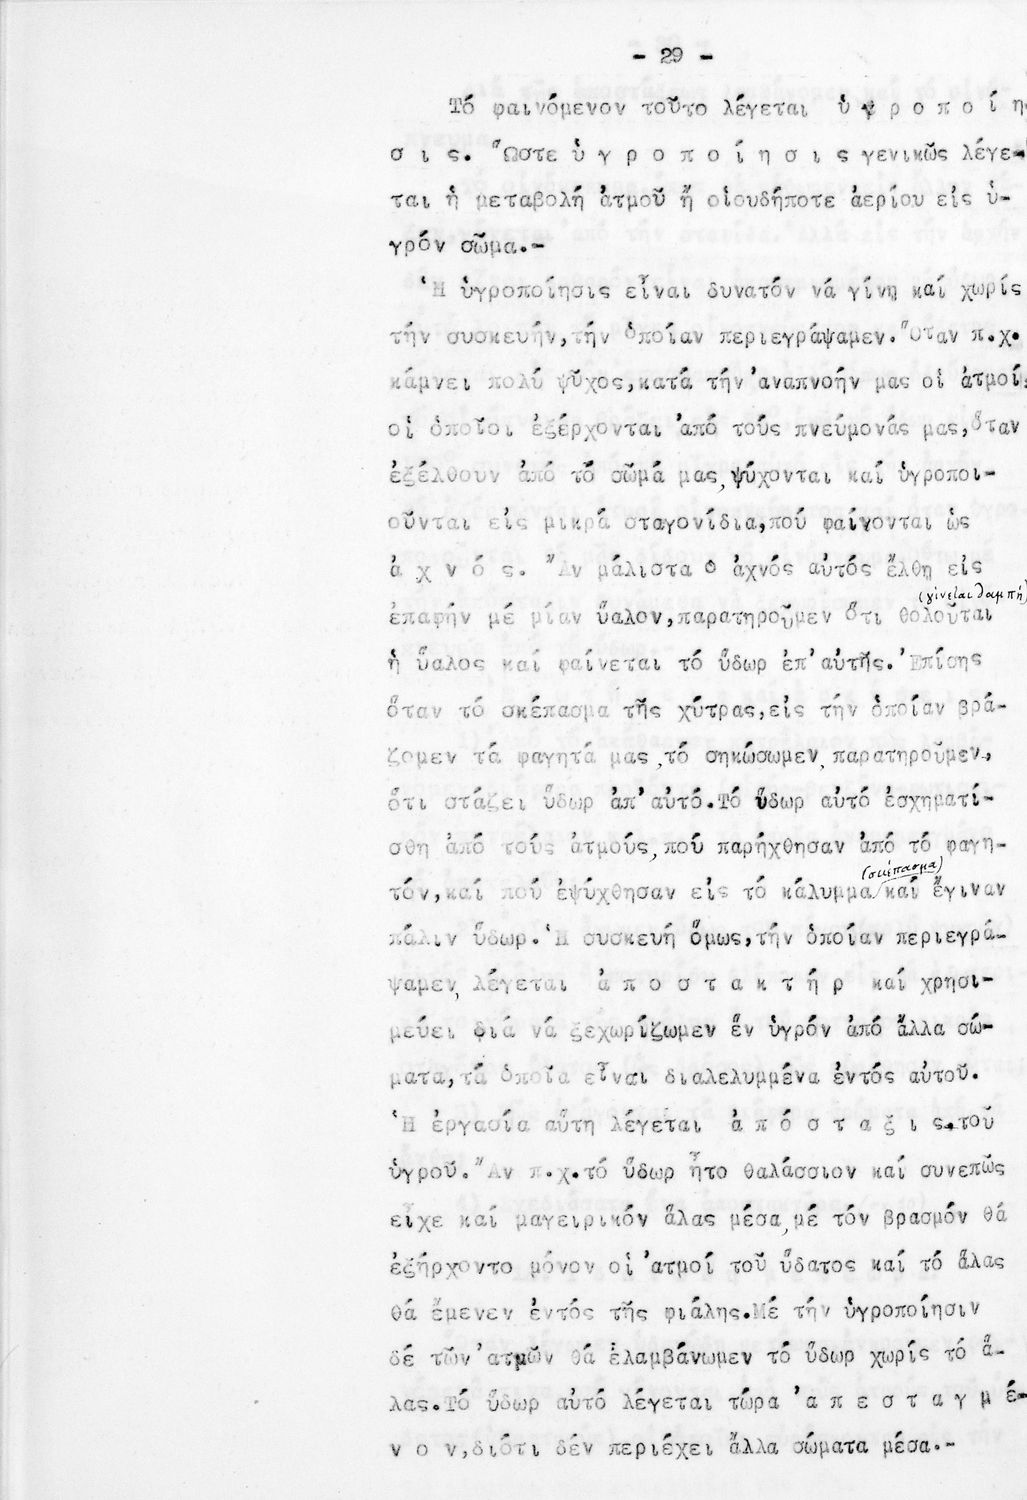 - 29 -
Τό φαινόμενον τοῦτο λέγεται ὑ γ ρ ο π ο ί η
σ ι ς. Ὥστε ὑ γ ρ ο π ο ί η σ ι ς γενικῶς λέγε-
ται ἡ μεταβολή ἀτμοῦ ἤ οἱουδήποτε ἀερίου εἰς ὑ-
γρόν σῶμα.-
Ἡ ὑγροποίησις εἶναι δυνατόν νά γίνῃ καί χωρίς
τήν συσκευήν, τήν ὁποίαν περιεγράψαμεν. Ὅταν π.χ.
κάμνει πολύ ψῦχος, κατά τήν ἀναπνοήν μας οἱ ἀτμοί,
οἱ ὁποῖοι ἐξέρχονται ἀπό τούς πνεύμονάς μας, ὅταν
ἐξέλθουν ἀπό τό σῶμά μας, ψύχονται καί ὑγροποι-
οῦνται εἰς μικρά σταγονίδια, πού φαίνονται ὡς
ἀ χ ν ό ς. Ἄν μάλιστα ὁ ἀχνός αὐτός ἔλθῃ εἰς
(γίνεται θαμπή)
ἐπαφήν μέ μίαν ὕαλον, παρατηροῦμεν ὅτι θολοῦται
ἡ ὕαλος καί φαίνεται τό ὕδωρ ἐπ' αὐτῆς. Ἐπίσης
ὅταν τό σκέπασμα τῆς χύτρας, εἰς τήν ὁποίαν βρά-
ζομεν τά φαγητά μας, τό σηκώσωμεν, παρατηροῦμεν,
ὅτι στάζει ὕδωρ ἀπ' αὐτό. Τό ὕδωρ αὐτό ἐσχηματί-
σθη ἀπό τούς ἀτμούς, πού παρήχθησαν ἀπό τό φαγη-
(σκέπασμα)
τόν, καί πού ἐψύχθησαν εἰς τό κάλυμμα καί ἔγιναν
πάλιν ὕδωρ. Ἡ συσκευή ὅμως, τήν ὁποίαν περιεγρά-
ψαμεν, λέγεται ἀ π ο σ τ α κ τ ή ρ καί χρησι-
μεύει διά νά ξεχωρίζωμεν ἕν ὑγρόν ἀπό ἄλλα σώ-
ματα, τά ὁποῖα εἶναι διαλελυμμένα ἐντός αὐτοῦ.
Ἡ ἐργασία αὕτη λέγεται ἀ π ό σ τ α ξ ι ς τοῦ
ὑγροῦ. Ἄν π.χ. τό ὕδωρ ἦτο θαλάσσιον καί συνεπῶς
εἶχε καί μαγειρικόν ἅλας μέσα, μέ τόν βρασμόν θά
ἐξήρχοντο μόνον οἱ ἀτμοί τοῦ ὕδατος καί τό ἅλας
θά ἔμενεν ἐντός τῆς φιάλης. Μέ τήν ὑγροποίησιν
δέ τῶν ἀτμῶν θά ἐλαμβάνωμεν τό ὕδωρ χωρίς τό ἅ-
λας. Τό ὕδωρ αὐτό λέγεται τώρα ἀ π ε σ τ α γ μ έ-
ν ο ν, διότι δέν περιέχει ἄλλα σώματα μέσα.-